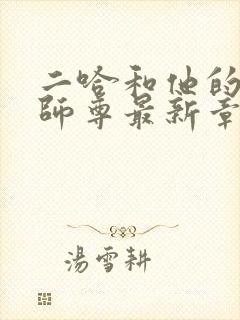 二哈和他的
師尊最新章
湯雪耕